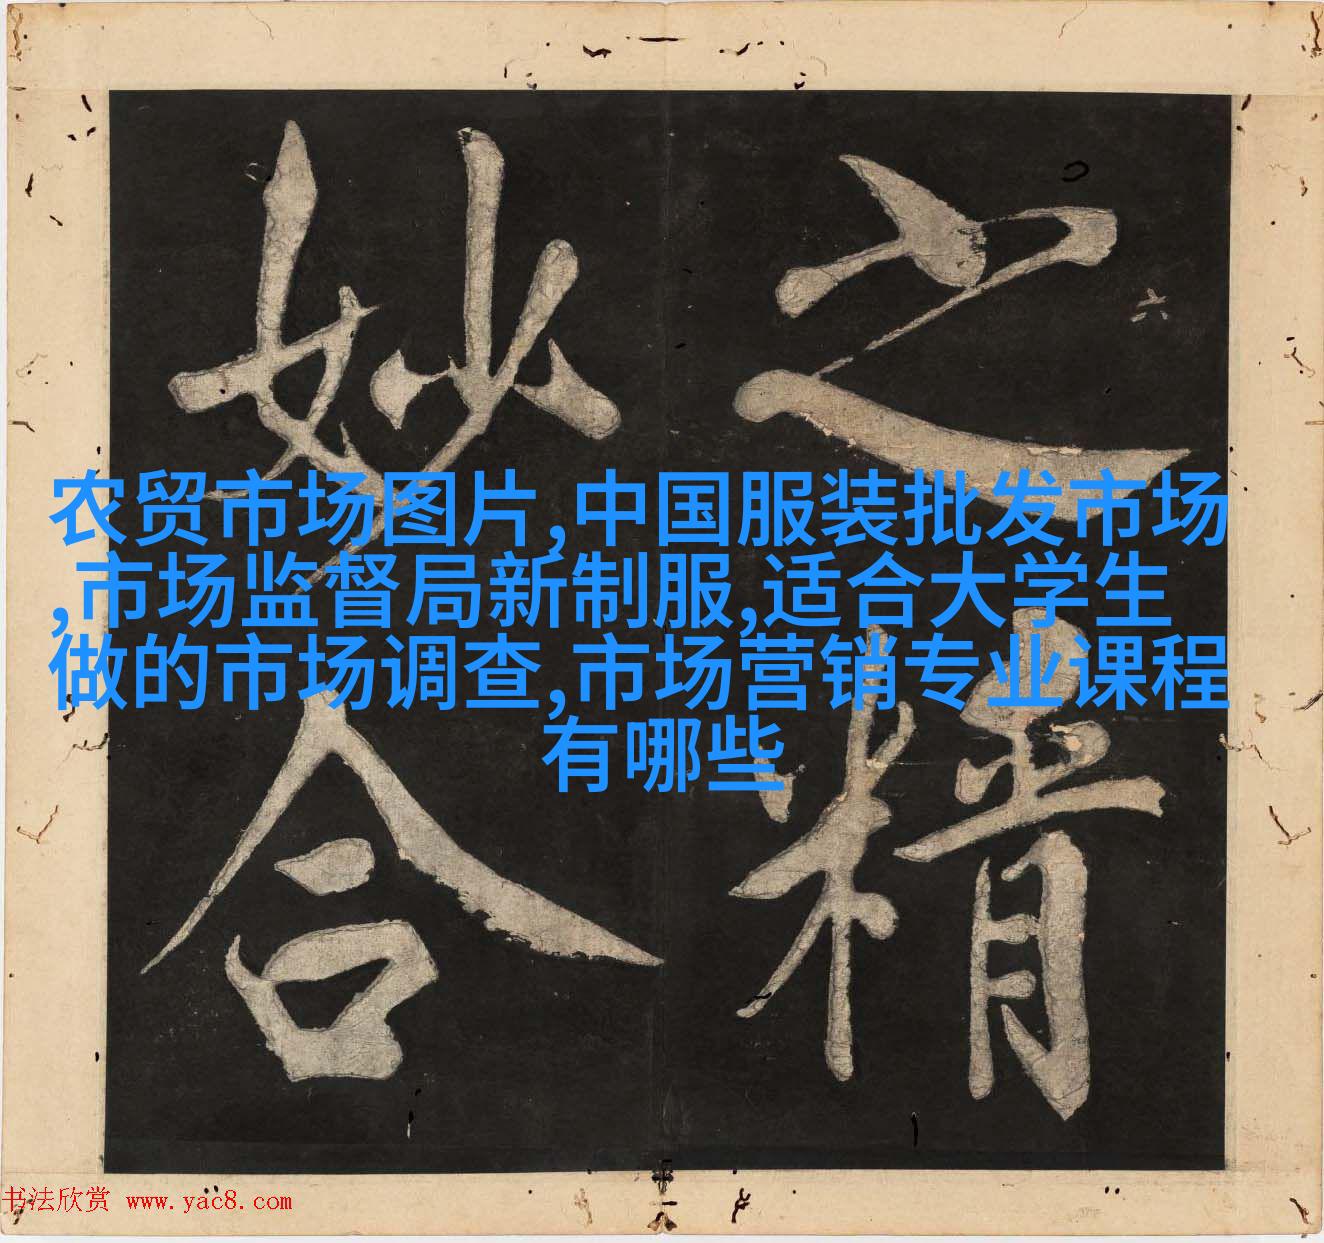 之精
妙合
六
农贸市场图片,中国服装批发市场
,市场监督局新制服,适合大学生
做的市场调查,市场营销专业课程
有哪些
书法欣赏 www.yac8.com